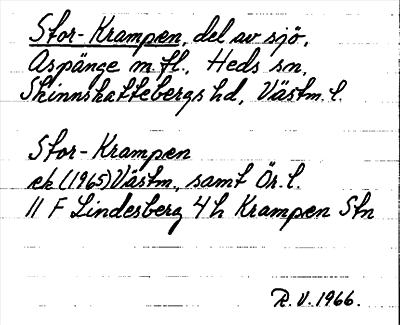 Stor-Krampen, del av sjö,
Aspänge m.fl., Heds sn,
Skinnskattebergs hd, Västm. l.
Stor-Krampen
ek (1965) Västm., samt Ör. l.
11 F Lindesberg 4 h Krampen Stn
R.V. 1966.